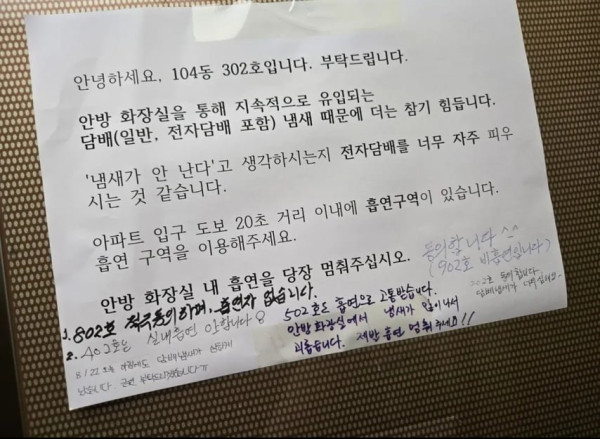 안녕하세요, 104동 302호입니다. 부탁드립니다.
안방 화장실을 통해 지속적으로 유입되는
담배(일반, 전자담배 포함) 냄새 때문에 더는 참기 힘듭니다.
'냄새가 안 난다'고 생각하시는지 전자담배를 너무 자주 피우
시는 것 같습니다.
아파트 입구 도보 20초 거리 이내에 흡연구역이 있습니다.
흡연 구역을 이용해주세요.
안방 화장실 내 흡연을 당장 멈춰주십시오.
동의합니다 ^^
(902호 비흡연입니다)
1. 802호 적극동의하며, 흡연자 없습니다.
2. 402호는 실내흡연 안합니다
8/22 담배냄새가
502호도 흡연으로 고통받습니다.
안방 화장실에서 냄새가 많이나서
괴롭습니다. 제발 흡연 멈춰주세요!!
동의합니다.
담배냄새가